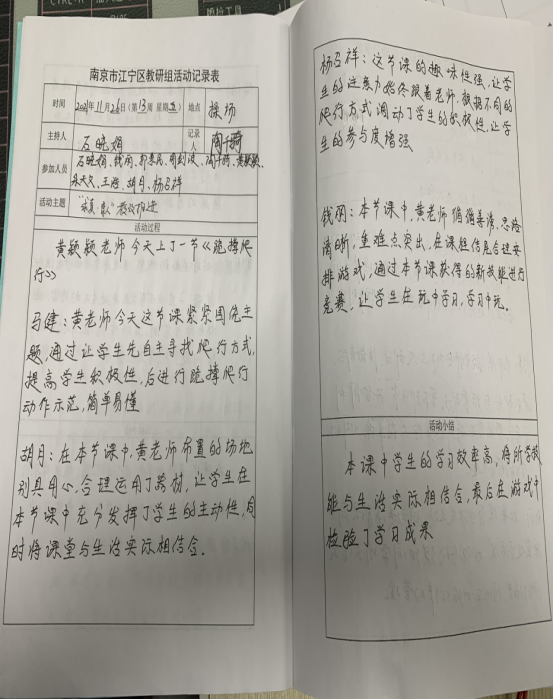 南京市江宁区教研组活动记录表
时间 2021年11月26日(第13周 星期五) 地点 操场
主持人 石晓娟 记录人 陶千琦
参加人员 石晓娟、钱雨、
胡月、杨召祥
活动主题 教改推进
活动过程
黄颖颖老师今天上了一节《跪撑爬
行》
马健:黄老师今天这节课紧紧围绕主
题,通过让学生先自主寻找爬行方式,
提高学生积极性,后进行跪撑爬行
动作示范,简单易懂
胡月:在本节课中,黄老师布置的场地
别具用心,合理运用了器材,让学生在
本节课中充分发挥了学生的主动性,同
时将课堂与生活实际相结合.
杨召祥:这节课的趣味性强,让学
生的注意力始终跟着老师,根据不同的
爬行方式调动了学生的积极性,让学
生的参与度增强
钱雨:本节课中,黄老师循循善诱,思路
清晰,重难点突出,在课程结尾合理安
排游戏,通过本节课获得的新技能进行
竞赛,让学生在玩中学习,学习中玩.
活动小结
本课中学生的学习效率高,将所学技
能与生活实际相结合,最后在游戏中
检验了学习成果